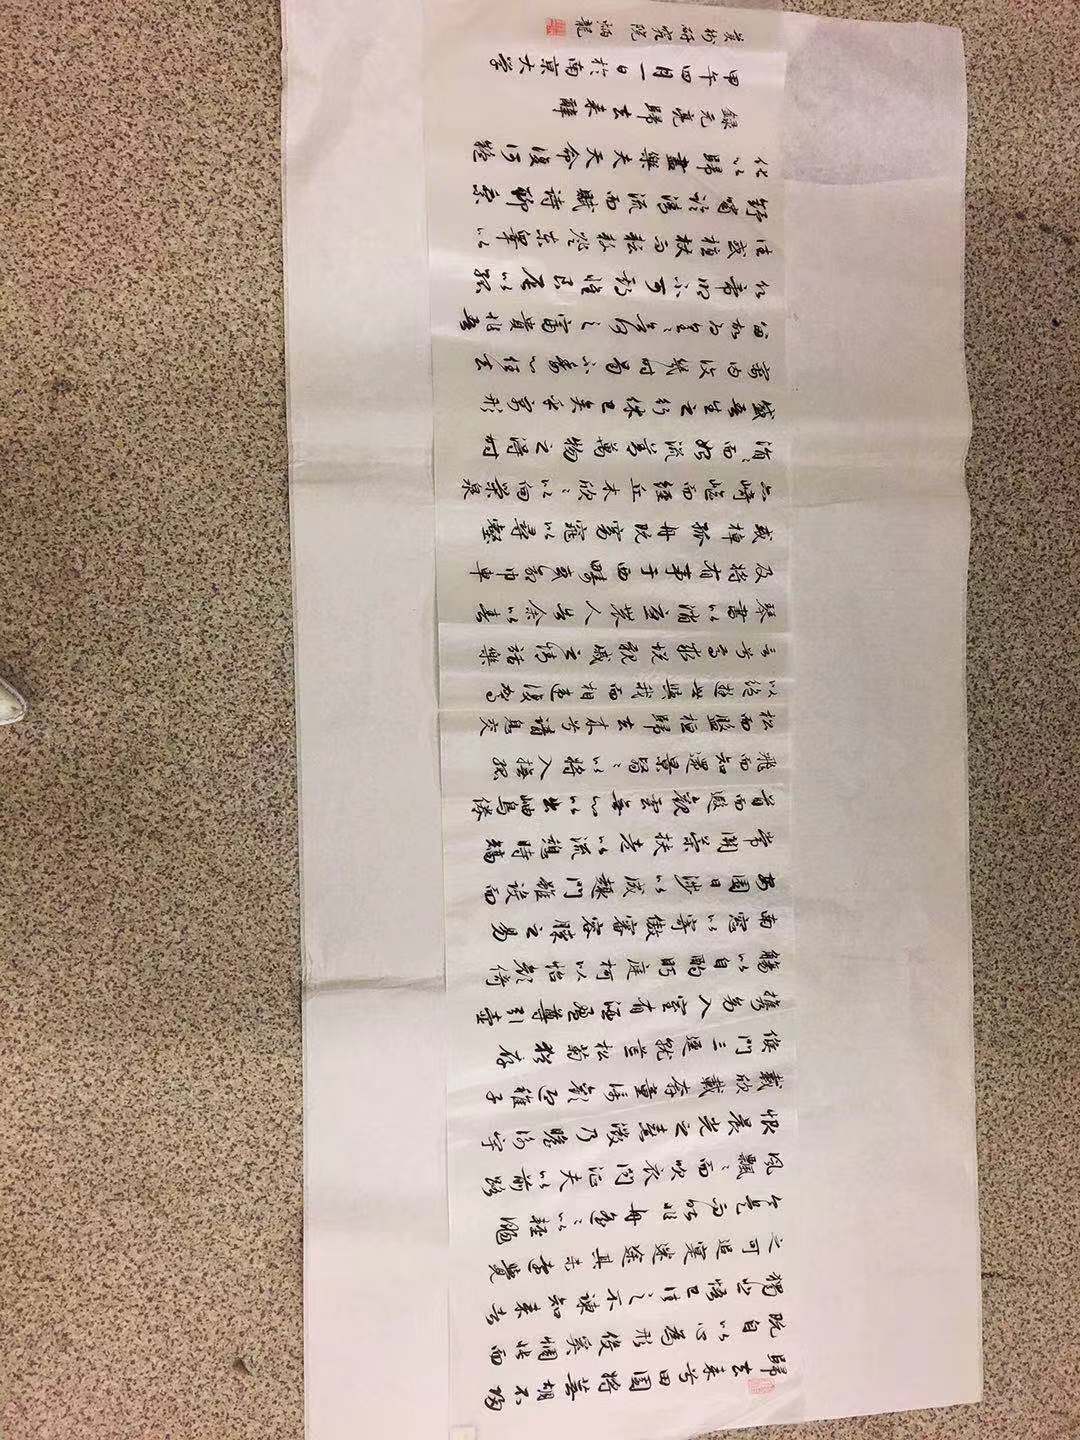 歸去来兮田園將蕪胡不歸
既自以心為形役奚惆悵而
獨悲悟已往之不諫知来者
之可追寔迷途其未遠覺
今是而昨非舟遙〻以輕颺
風飄〻而吹衣問征夫以前路
恨晨光之熹微乃瞻衡宇
載欣載奔童僕歡迎稚子
候門三逕就荒松菊猶存
攜幼入室有酒盈尊引壺
觴以自酌眄庭柯以怡顏倚
南窓以寄傲審容膝之易
安園日涉以成趣門雖設而
常關策扶老以流憩時矯
首而遐觀雲無心以出岫鳥倦
飛而知還景翳〻以將入撫孤
松而盤桓歸去来兮請息交
以絶遊世與我而相違復駕
言兮焉求悅親戚之情話樂
琴書以消憂農人告余以春
及將有事于西疇或命巾車
或棹孤舟既窈窕以尋壑
亦崎嶇而經丘木欣〻以向榮泉
涓〻而始流羨萬物之得時
感吾生之行休已矣乎寓形
宇内復幾時曷不委心任去
留胡為遑〻欲何之富貴非吾
願帝鄉不可期懷良辰以孤
往或植杖而耘耔登東皋以
舒嘯臨清流而賦詩聊乘
化以歸盡樂夫天命復何疑
録元亮歸去来辭
甲午四月一日於南京大学
美術研究院炳龍